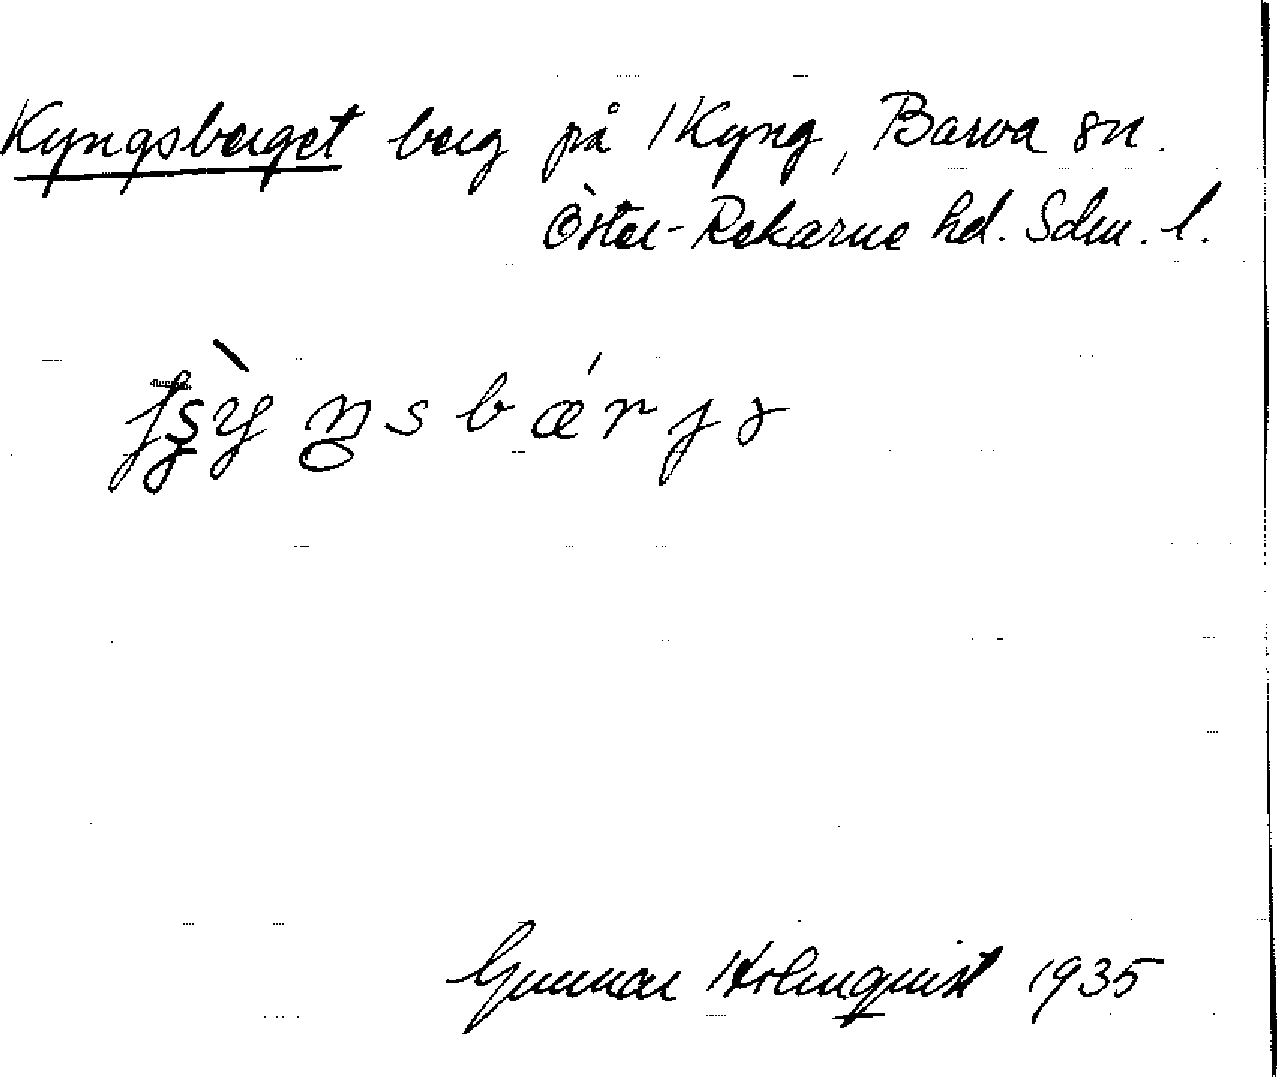 Kyngsberget berg på Kyng, Barva sn.
Öster-Rekarne hd. Sdm. l.
Gunnar Holmquist 1935